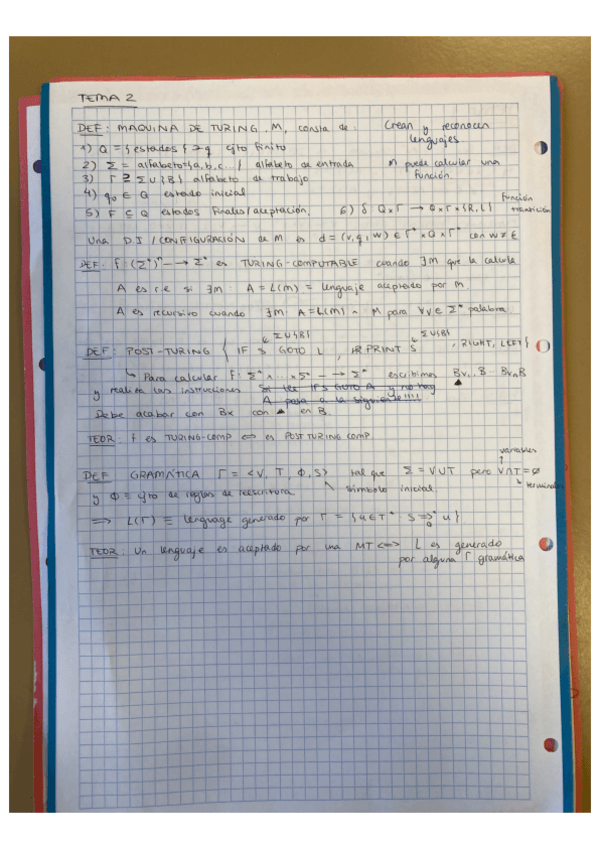 TEMA 2
DEF: MAQUINA DE TURING, M, consta de: Crean y reconocen lenguajes
1) Q = {estados} ∋ q cjto finito
2) Σ = alfabeto={a,b,c...} alfabeto de entrada M puede calcular una
3) Γ ⊇ Σ ∪ {B} alfabeto de trabajo función.
4) q₀ ∈ Q estado inicial
5) F ⊆ Q estados finales/aceptación. 6) δ Q×Γ → Q×Γ×{R,L} Función transición
Una D.I / CONFIGURACIÓN de M es d = (v,q,w) ∈ Γ*×Q×Γ* con w≠ε
DEF: f: (Σ*)ⁿ --→ Σ* es TURING-COMPUTABLE cuando ∃M que la calcula
A es r.e si ∃M: A = L(M) = lenguaje aceptado por M.
A es recursivo cuando ∃M: A=L(M) ∧ M para ∀v∈Σ* palabra.
Σ∪{B} Σ∪{B}
DEF: POST-TURING { IF S GOTO L, PRINT S, RIGHT, LEFT}
↳ Para calcular f: Σ*×...×Σ* --→ Σ* escribimos Bv₁...B...BvₙB
y realiza las instrucciones Si lee IF S GOTO A y no hay
A pasa a la siguiente!!!!
Debe acabar con Bx con ▲ en B.
TEOR: f es TURING-COMP ⟺ es POST TURING COMP
variables
DEF GRAMÁTICA Γ = <V, T, Φ, S> tal que Σ = V∪T pero V∩T=∅
y Φ = cjto de reglas de reescritura. símbolo inicial. terminales
⟹ L(Γ) ≡ lenguage generado por Γ = {u∈T* : S ⟹* u}
TEOR: Un lenguaje es aceptado por una MT ⟺ L es generado
por alguna Γ gramática